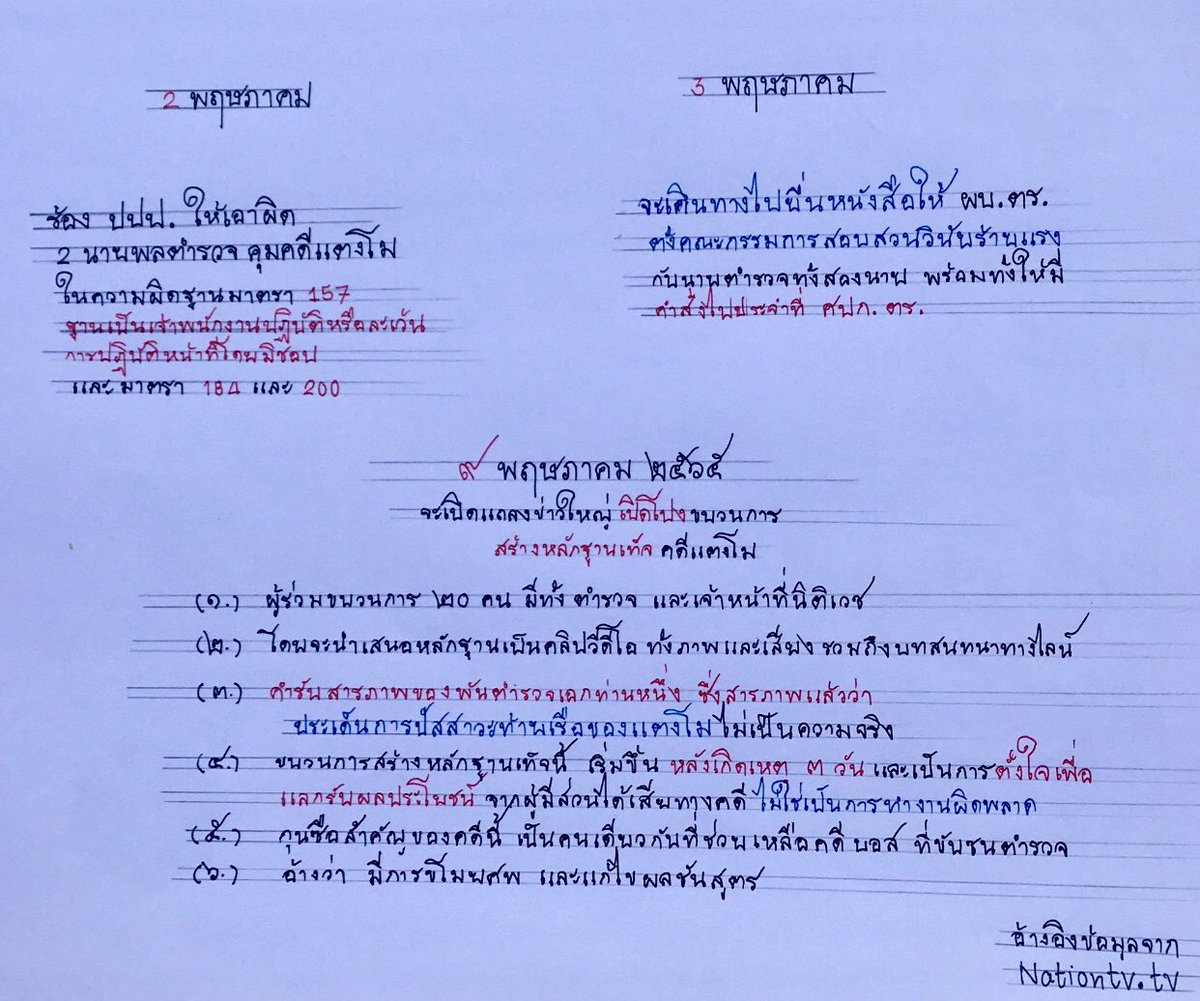 2 พฤษภาคม
ร้อง ปปป. ให้เอาผิด
2 นายพลตำรวจ คุมคดีแตงโม
ในความผิดฐานมาตรา 157
ฐานเป็นเจ้าพนักงานปฏิบัติหรือละเว้น
การปฏิบัติหน้าที่โดยมิชอบ
และมาตรา 184 และ 200
3 พฤษภาคม
จะเดินทางไปยื่นหนังสือให้ ผบ.ตร.
ตั้งคณะกรรมการสอบสวนวินัยร้ายแรง
กับนายตำรวจทั้งสองนาย พร้อมทั้งให้มี
คำสั่งไปประจำที่ ศปก.ตร.
๙ พฤษภาคม ๒๕๖๕
จะเปิดแถลงข่าวใหญ่ เปิดโปงขบวนการ
สร้างหลักฐานเท็จ คดีแตงโม
(๑.) ผู้ร่วมขบวนการ ๒๐ คน มีทั้ง ตำรวจ และเจ้าหน้าที่นิติเวช
(๒.) โดยจะนำเสนอหลักฐานเป็นคลิปวีดีโอ ทั้งภาพและเสียง รวมถึงบทสนทนาทางไลน์
(๓.) คำรับสารภาพของพันตำรวจเอกท่านหนึ่ง ซึ่งสารภาพแล้วว่า
ประเด็นการปัสสาวะท้ายเรือของแตงโม ไม่เป็นความจริง
(๔.) ขบวนการสร้างหลักฐานเท็จนี้ เริ่มขึ้น หลังเกิดเหต ๓ วัน และเป็นการตั้งใจเพื่อ
แลกรับผลประโยชน์ จากผู้มีส่วนได้เสียทางคดี ไม่ใช่เป็นการทำงานผิดพลาด
(๕.) กุนซือสำคัญของคดีนี้ เป็นคนเดียวกันที่ช่วยเหลือคดี บอส ที่ขับชนตำรวจ
(๖.) อ้างว่า มีการขโมยศพ และแก้ไขผลชันสูตร
อ้างอิงข้อมูลจาก
Nationtv.tv